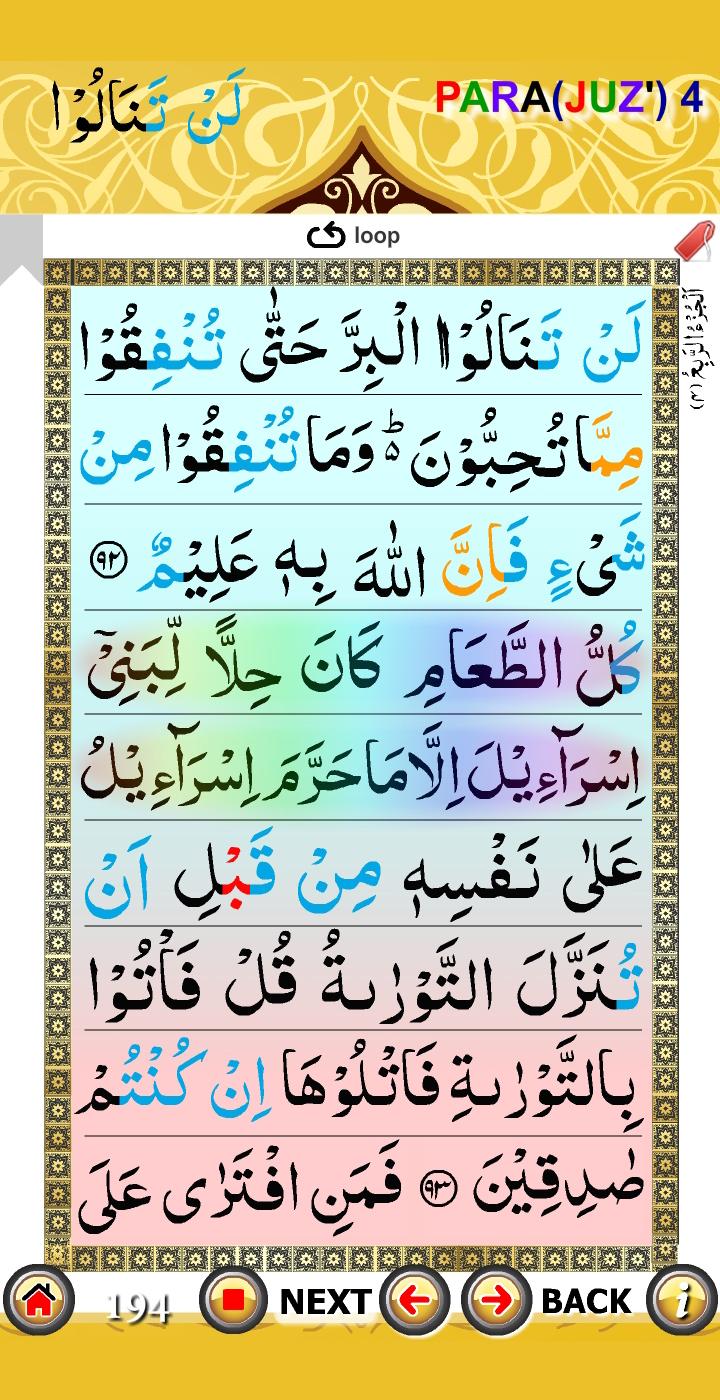 لَنْ تَنَالُوْا
PARA(JUZ') 4
loop
اَلْجُزْءُ الرَّابِعُ (۴)
لَنْ تَنَالُوا الْبِرَّ حَتّٰى تُنْفِقُوْا
مِمَّا تُحِبُّوْنَ ؕ۬ وَمَا تُنْفِقُوْا مِنْ
شَیْءٍ فَاِنَّ اللّٰهَ بِهٖ عَلِیْمٌ ﴿۹۲﴾
كُلُّ الطَّعَامِ كَانَ حِلًّا لِّبَنِیْۤ
اِسْرَآءِیْلَ اِلَّا مَا حَرَّمَ اِسْرَآءِیْلُ
عَلٰى نَفْسِهٖ مِنْ قَبْلِ اَنْ
تُنَزَّلَ التَّوْرٰىةُ قُلْ فَاْتُوْا
بِالتَّوْرٰىةِ فَاتْلُوْهَا اِنْ كُنْتُمْ
صٰدِقِیْنَ ﴿۹۳﴾ فَمَنِ افْتَرٰى عَلَى
194 NEXT BACK i